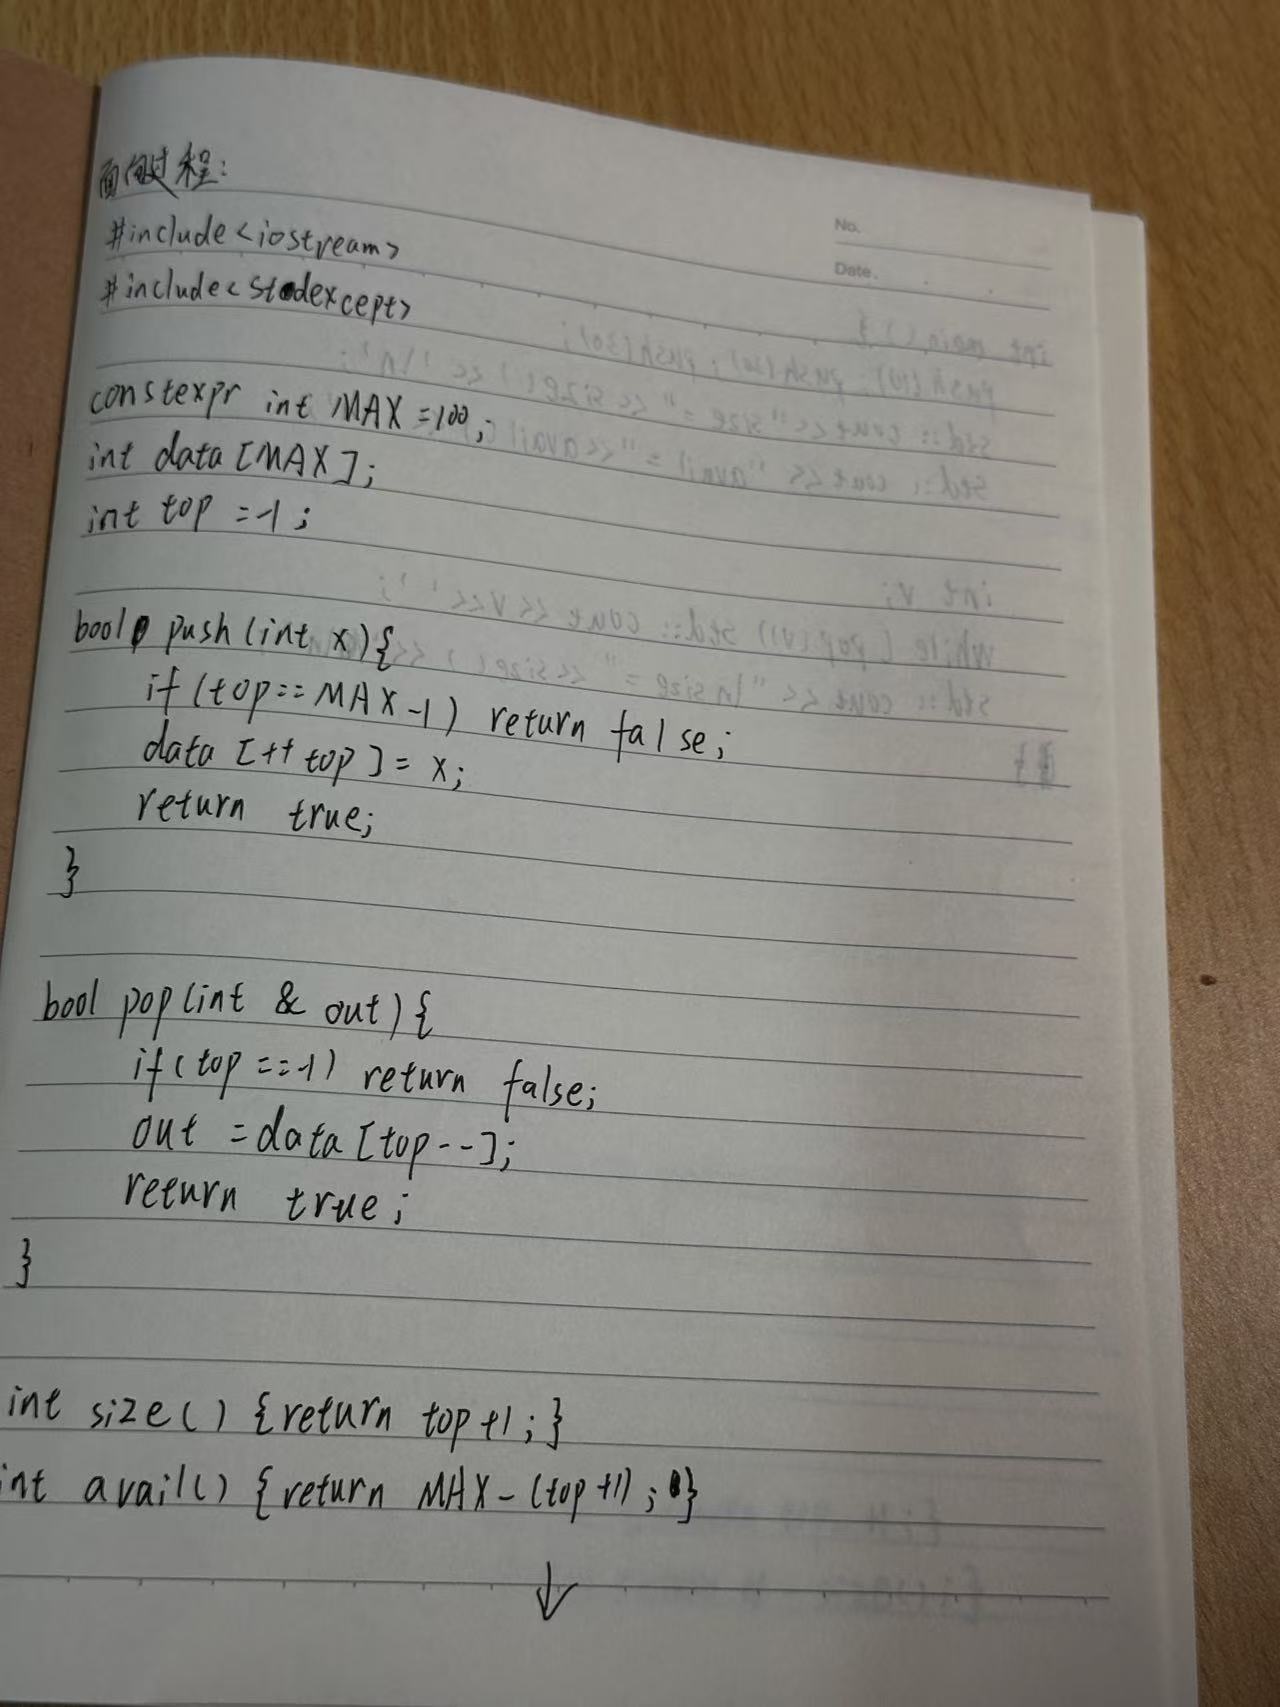 面向过程:
#include<iostream>
#include<stdexcept>
No.
Date.
constexpr int MAX=100;
int data[MAX];
int top =-1;
bool push(int x){
if(top==MAX-1) return false;
data[++top]= x;
return true;
}
bool pop(int & out){
if(top==-1) return false;
out =data[top--];
return true;
}
int size() {return top+1;}
int avail() {return MAX-(top+1);}
↓